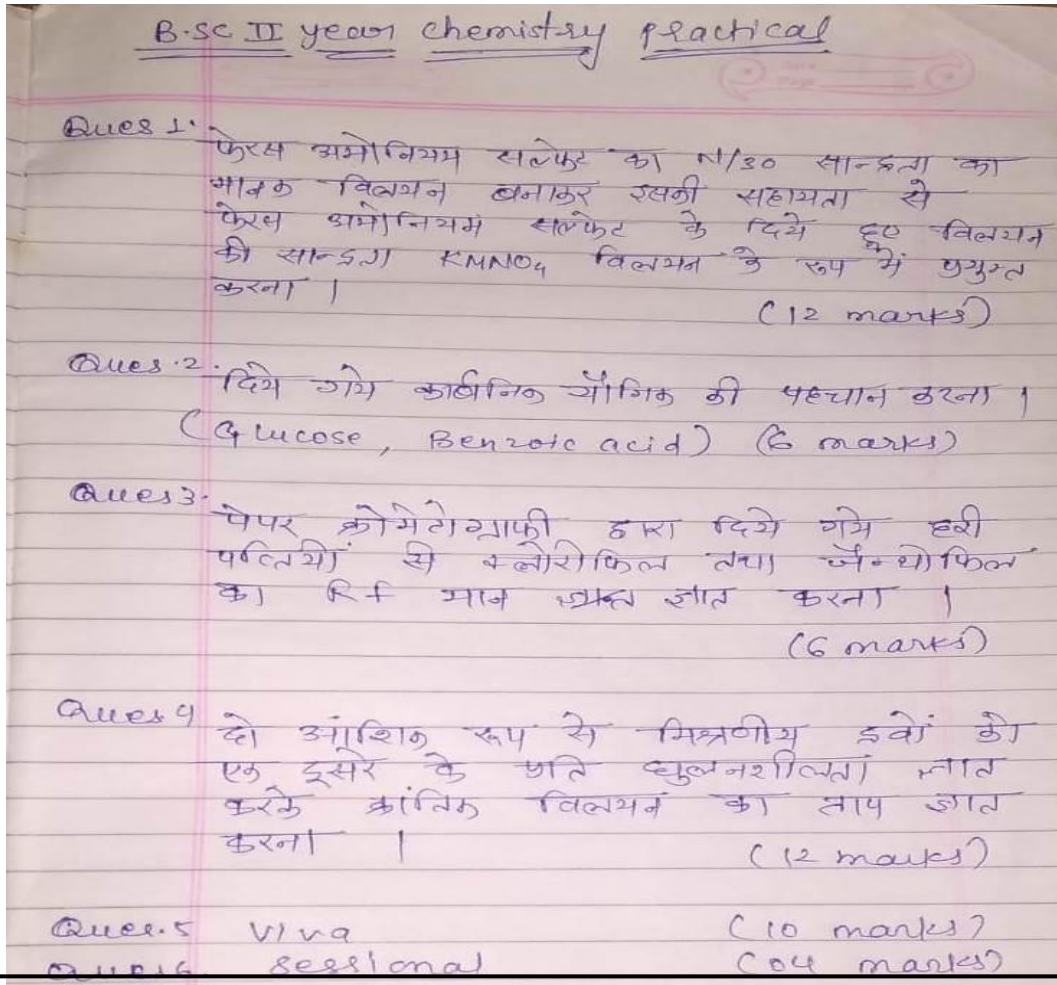 B.SC II year chemistry practical
Ques 1.
फेरस अमोनियम सल्फेट का N/30 सान्द्रता का
मानक विलयन बनाकर इसकी सहायता से
फेरस अमोनियम सल्फेट के दिये हुए विलयन
की सान्द्रता KMNO4 विलयन के रूप में प्रयुक्त
करना ।
(12 marks)
Ques.2.
दिये गये कार्बनिक यौगिक की पहचान करना ।
(Glucose, Benzoic acid) (6 marks)
Ques3.
पेपर क्रोमेटोग्राफी द्वारा दिये गये हरी
पत्तियों से क्लोरोफिल तथा जैन्थोफिल
का Rf मान ज्ञात करना ।
(6 marks)
Ques 4
दो आंशिक रूप से मिश्रणीय द्रवों की
एक दूसरे के प्रति घुलनशीलता ज्ञात
करके क्रांतिक विलयन का ताप ज्ञात
करना ।
(12 marks)
Ques.5 viva (10 marks)
Ques6. sessional (04 marks)